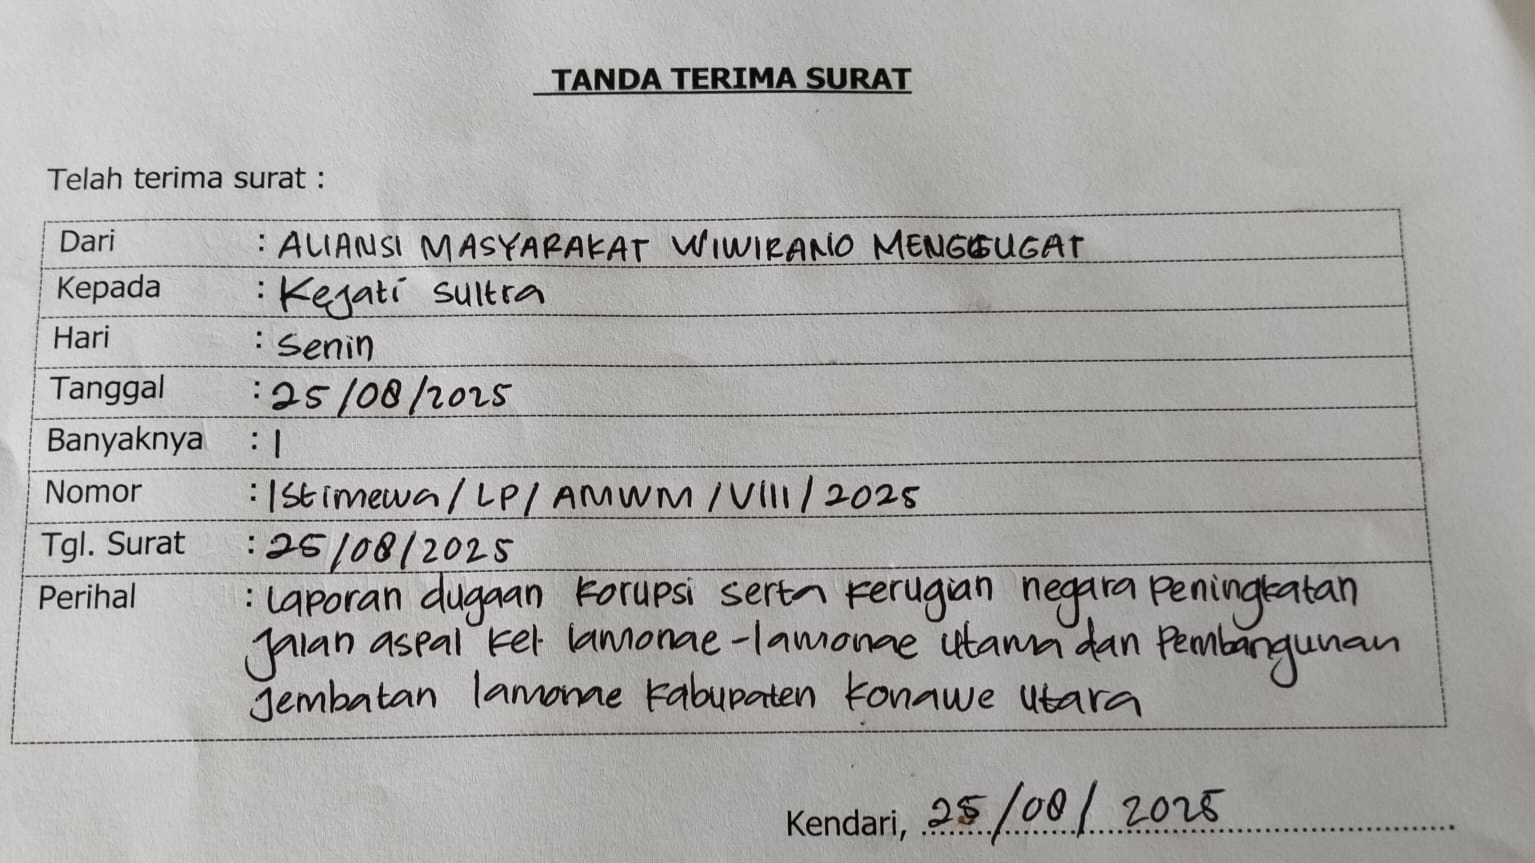 TANDA TERIMA SURAT
Telah terima surat :
Dari : ALIANSI MASYARAKAT WIWIRANO MENGGUGAT
Kepada : Kejati Sultra
Hari : Senin
Tanggal : 25/08/2025
Banyaknya : 1
Nomor : Istimewa/LP/AMWM/VIII/2025
Tgl. Surat : 25/08/2025
Perihal : Laporan dugaan korupsi serta kerugian negara Peningkatan
Jalan aspal kel lamonae-lamonae utama dan Pembangunan
Jembatan lamonae kabupaten konawe utara
Kendari, 25/08/2025